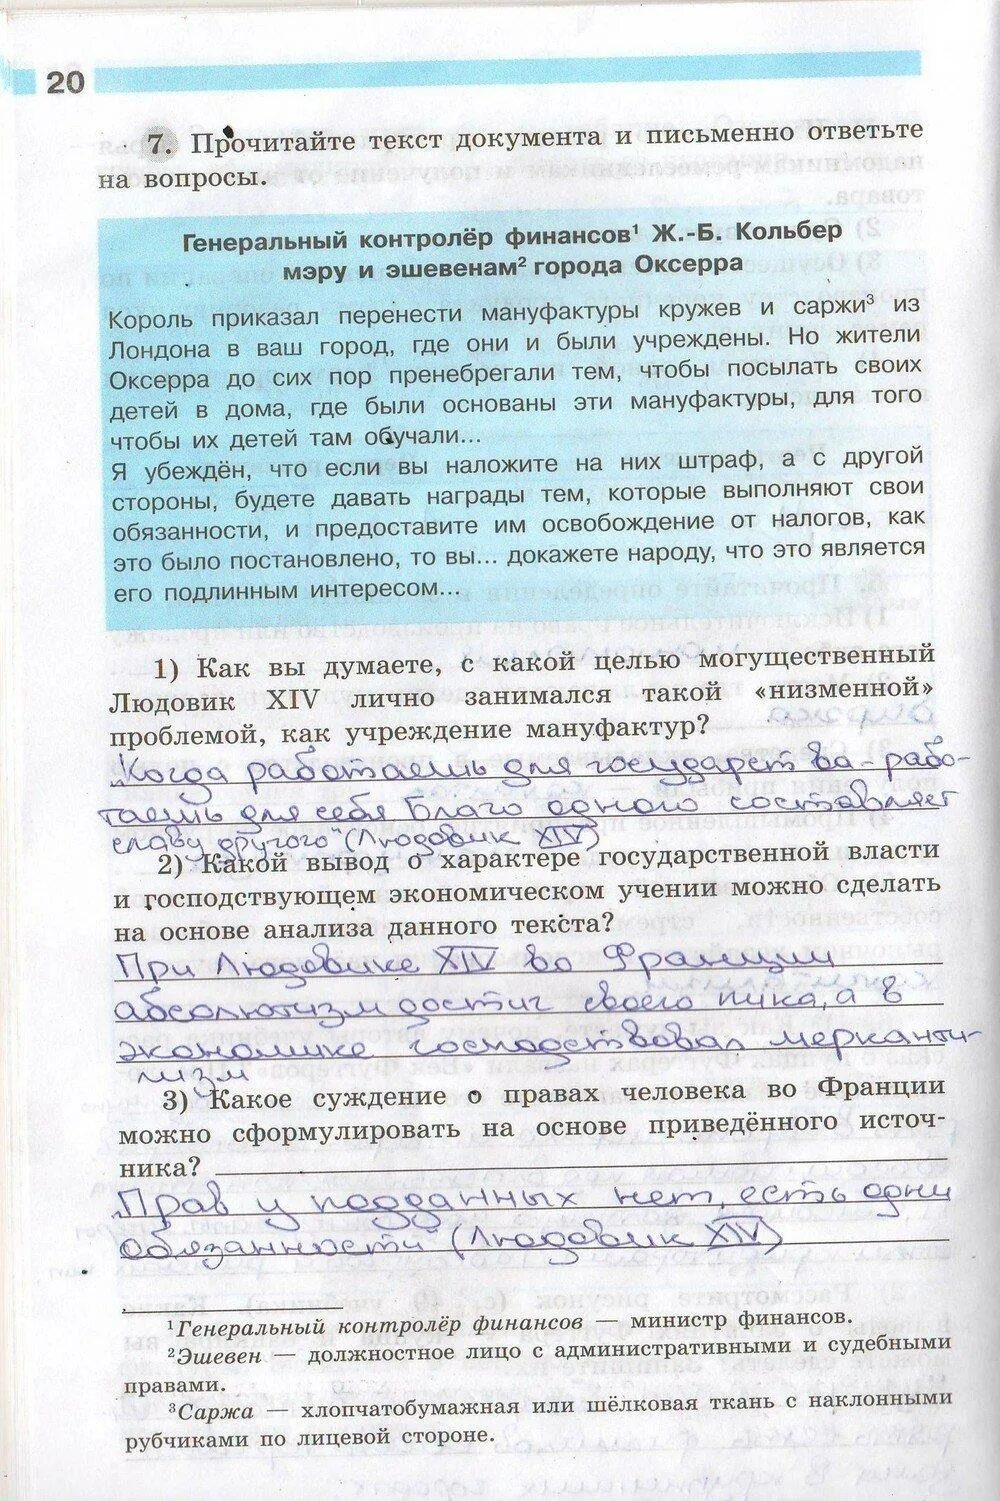 20
7. Прочитайте текст документа и письменно ответьте
на вопросы.
Генеральный контролёр финансов¹ Ж.-Б. Кольбер
мэру и эшевенам² города Оксерра
Король приказал перенести мануфактуры кружев и саржи³ из
Лондона в ваш город, где они и были учреждены. Но жители
Оксерра до сих пор пренебрегали тем, чтобы посылать своих
детей в дома, где были основаны эти мануфактуры, для того
чтобы их детей там обучали...
Я убеждён, что если вы наложите на них штраф, а с другой
стороны, будете давать награды тем, которые выполняют свои
обязанности, и предоставите им освобождение от налогов, как
это было постановлено, то вы... докажете народу, что это является
его подлинным интересом...
1) Как вы думаете, с какой целью могущественный
Людовик XIV лично занимался такой «низменной»
проблемой, как учреждение мануфактур?
"Когда работаешь для государства - рабо-
таешь для себя Благо одного составляет
славу другого" (Людовик XIV)
2) Какой вывод о характере государственной власти
и господствующем экономическом учении можно сделать
на основе анализа данного текста?
При Людовике XIV во Франции
абсолютизм достиг своего пика, а в
экономике господствовал меркант-
лизм
3) Какое суждение о правах человека во Франции
можно сформулировать на основе приведённого источ-
ника?
"Прав у подданных нет, есть одни
обязанности" (Людовик XIV)
¹Генеральный контролёр финансов — министр финансов.
²Эшевен — должностное лицо с административными и судебными
правами.
³Саржа — хлопчатобумажная или шёлковая ткань с наклонными
рубчиками по лицевой стороне.